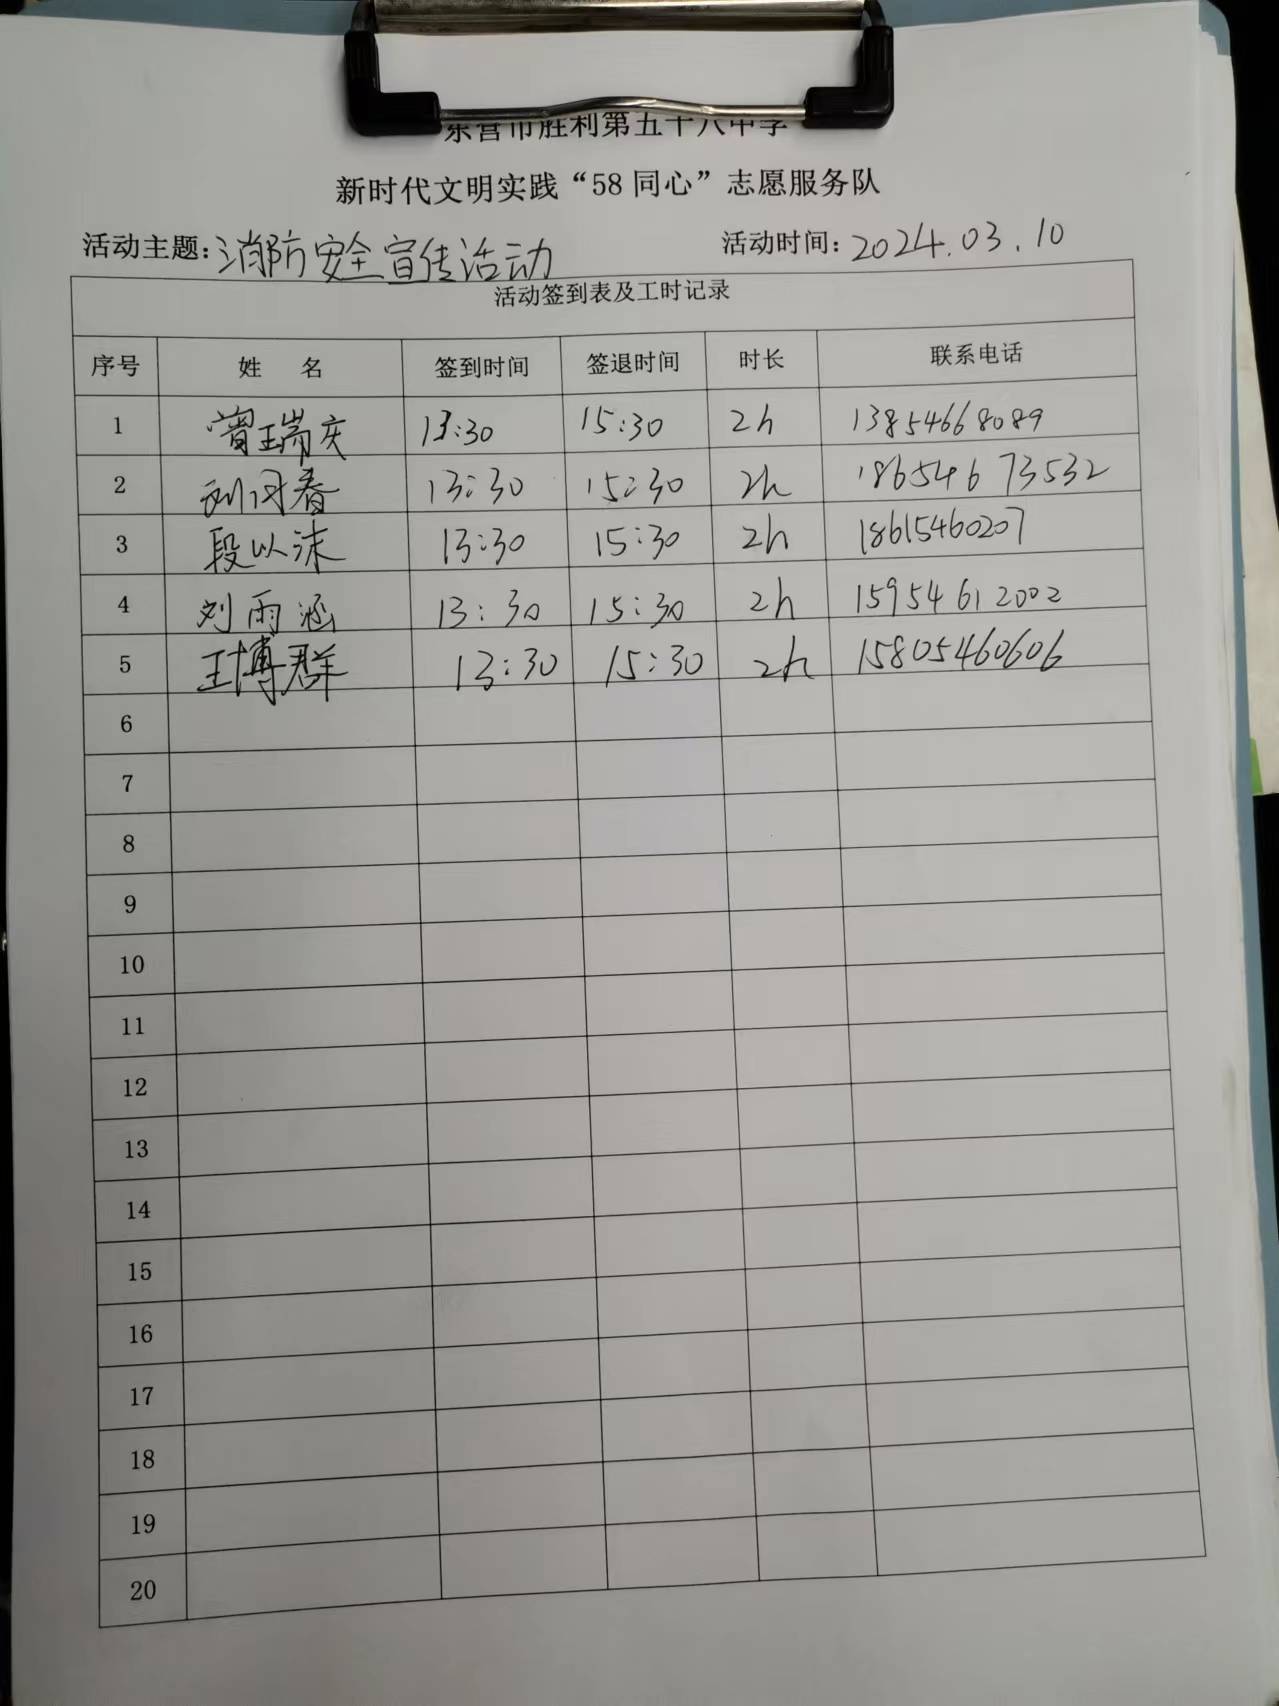 东营市胜利第五十八中学
新时代文明实践“58同心”志愿服务队
活动主题:消防安全宣传活动 活动时间:2024.03.10
活动签到表及工时记录
序号 姓 名 签到时间 签退时间 时长 联系电话
1 瑞庆 13:30 15:30 2h 13854668089
2 刘同春 13:30 15:30 2h 18654673532
3 段以沫 13:30 15:30 2h 18615460207
4 刘雨涵 13:30 15:30 2h 15954612002
5 王博群 13:30 15:30 2h 15805460606
6
7
8
9
10
11
12
13
14
15
16
17
18
19
20